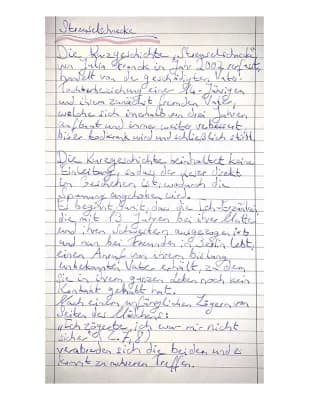 Streuselschnecke
Die Kurzgeschichte "Streuselschnecke"
von Julia Franck im Jahr 2002 verfasst,
handelt von der geschädigten Vater-
Tochterbeziehung einer 14-Jährigen
und ihrem zunächst fremden Vater,
welche sich innerhalb von drei Jahren
aufbaut und immer weiter verbessert
bis er todkrank wird und schließlich stirbt.
Die Kurzgeschichte beinhaltet keine
Einleitung, sodass der Leser direkt
im Geschehen ist, wodurch die
Spannung angehoben wird.
Es beginnt damit, dass die Ich-Erzählerin
die mit 13 Jahren bei ihrer Mutter
und ihren Schwestern ausgezogen ist
und nun bei Freunden in Berlin lebt,
einen Anruf von ihrem bislang
unbekannten Vater erhält, zu dem
sie in ihrem ganzen Leben noch kein
Kontakt gehabt hat.
Nach einem anfänglichen Zögern von
Seiten des Mädchens:
"Ich zögerte, ich war mir nicht
sicher" (Z. 7, 8)
verabreden sich die beiden und es
kommt zu mehreren Treffen.